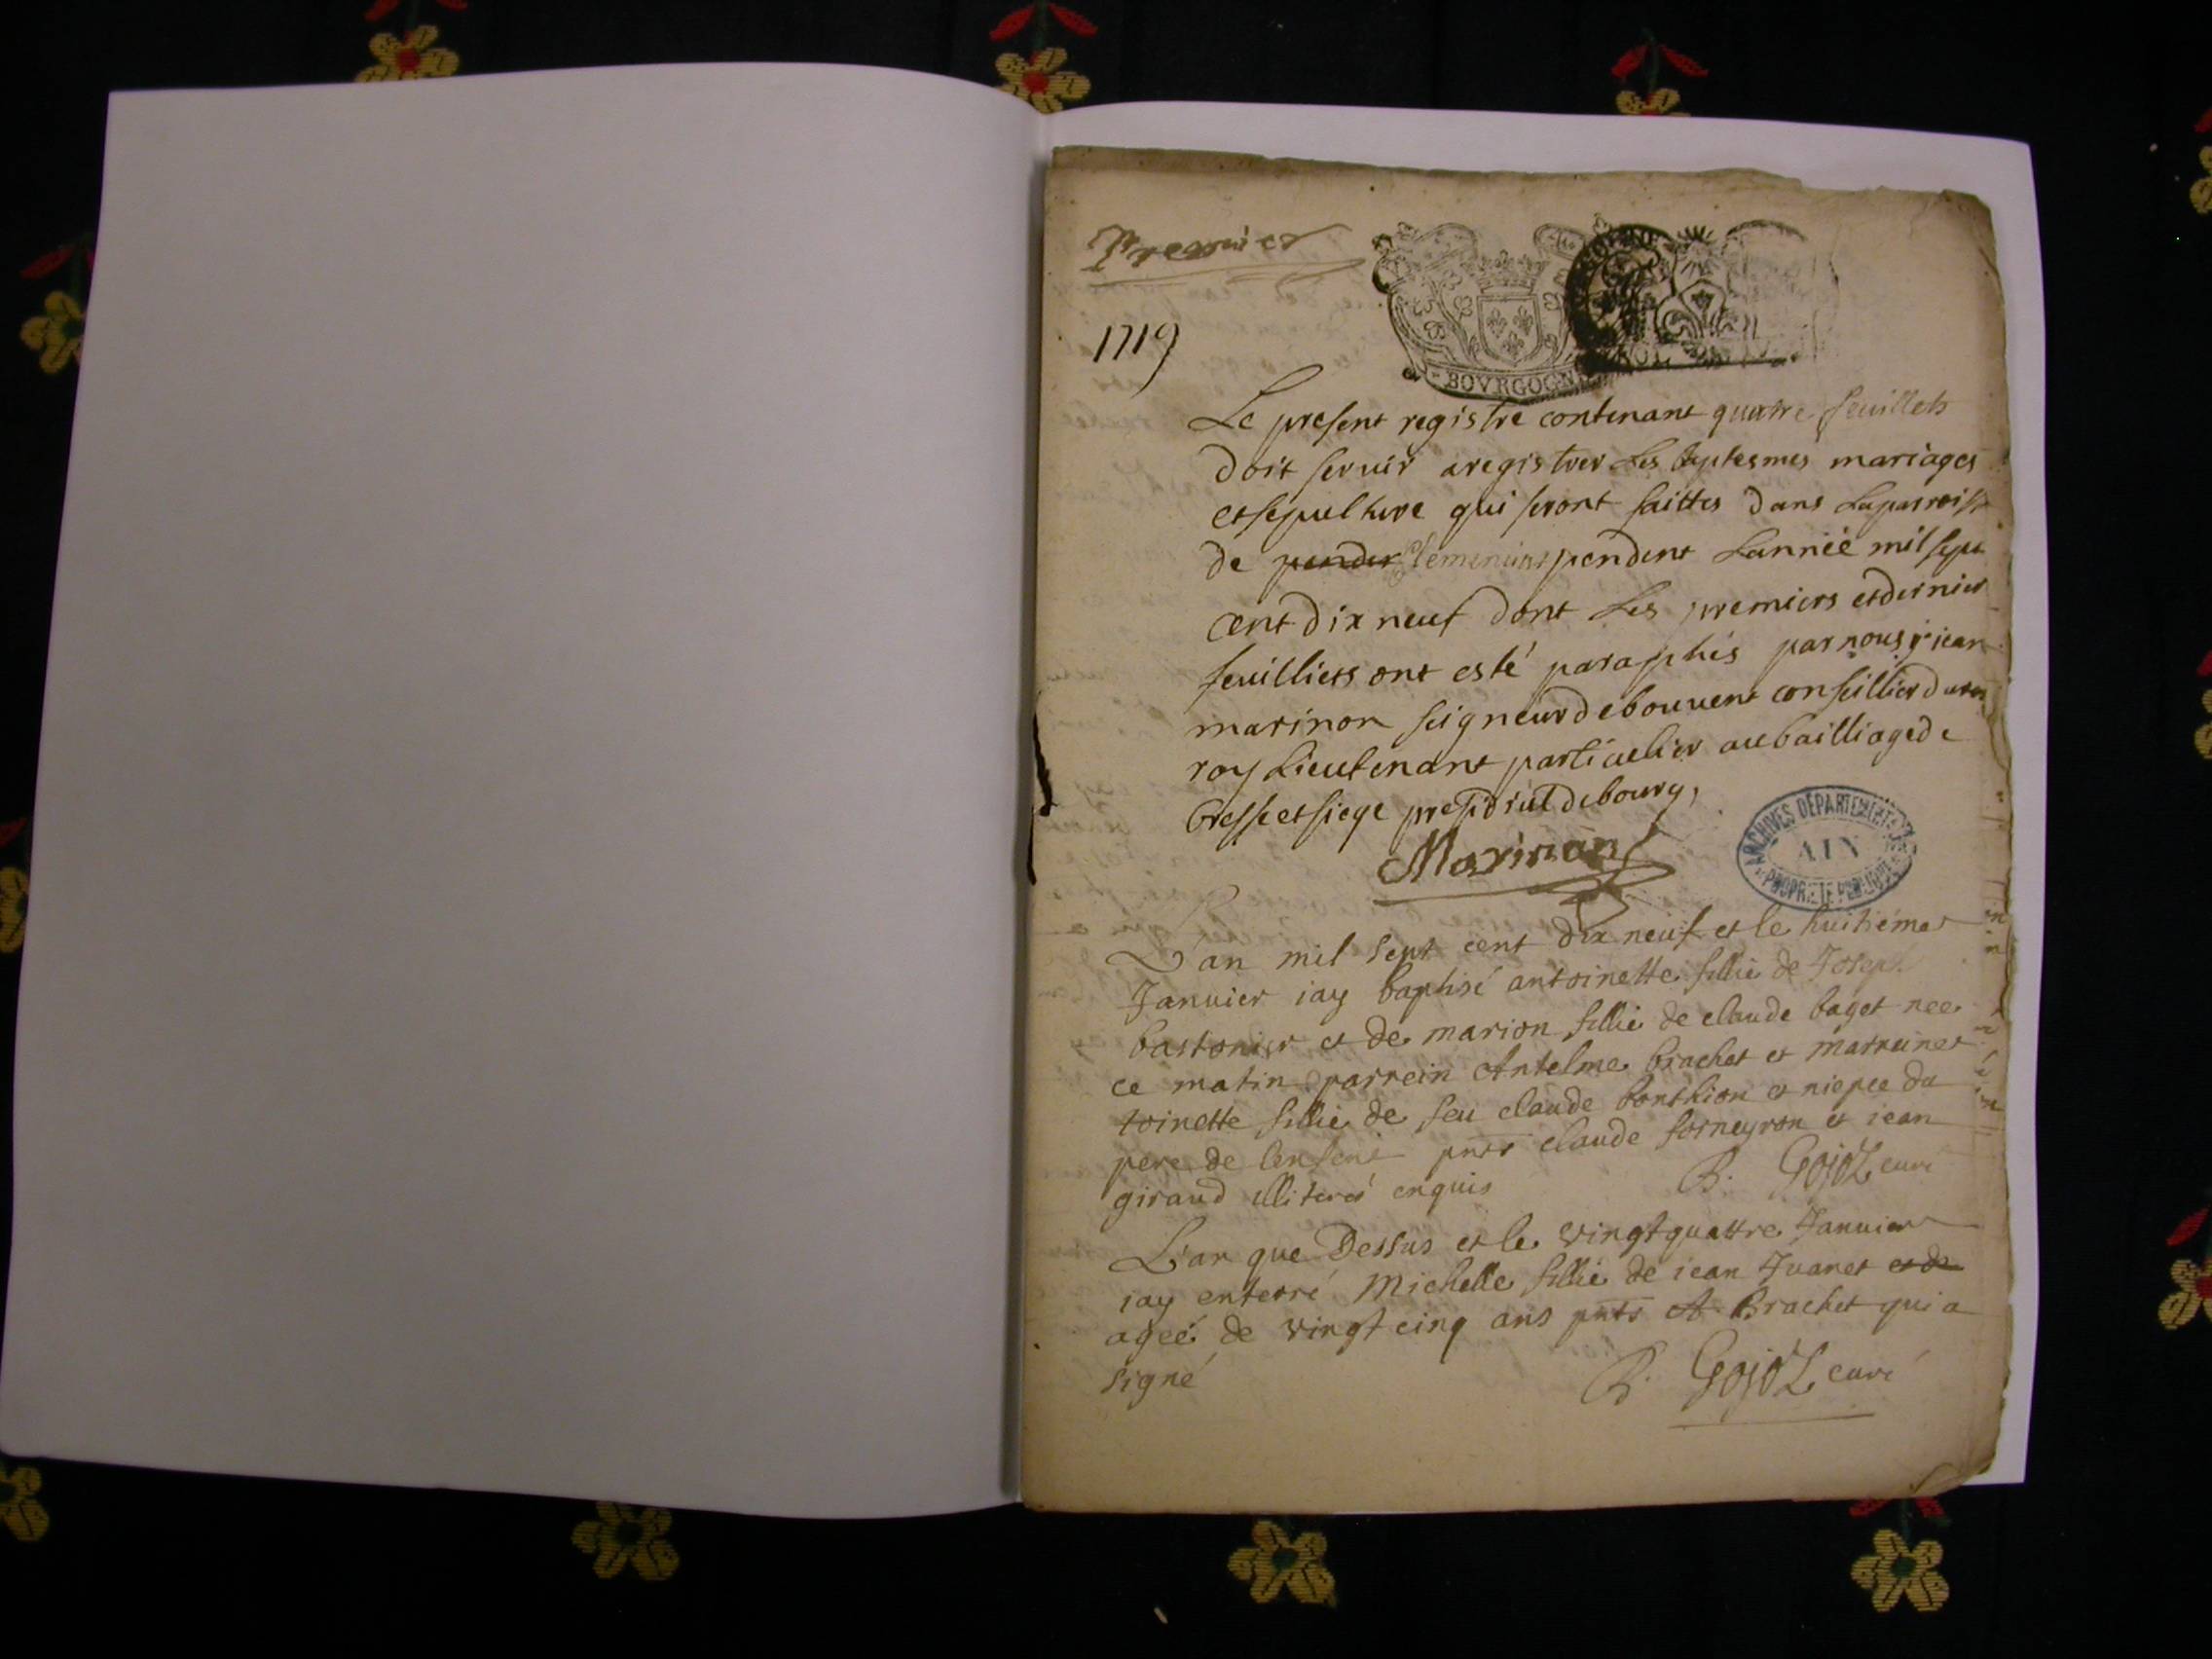 Premier
BOVRGOGN
1719
Le present registre contenant quatre feuillets
doit servir a registrer Les baptesmes mariages
et sepulture qui seront faittes dans La parroisse
de pendent L'année mil sept
cent dix neuf dont Les premiers et dernier
feuilliets ont esté paraphés par nous jean
marinon seigneur de bouvent conseillier du
roy Lieutenant particulier au bailliage de
bresse et siege presidial de bourg,
Marinon
ARCHIVES DÉPARTEMENTALES
AIN
PROPRIÉTÉ PUBLIQUE
L'an mil sept cent dix neuf et le huitiéme
Januier iay baptisé antoinette fillie de Joseph
bastonier et de marion fillie de claude baget nee
ce matin parrein Antelme brachet et marreine
toinette fillie de feu claude bonthion et niepce du
pere de lenfent pnts claude forneyron et iean
giraud illiterés enquis B. Gojoz curé
L'an que Dessus et le vingt quattre Januier
iay enterré Michelle fillie de iean Juanet et de
ageé de vingt cinq ans pnts A Brachet qui a
signé B. Gojoz curé